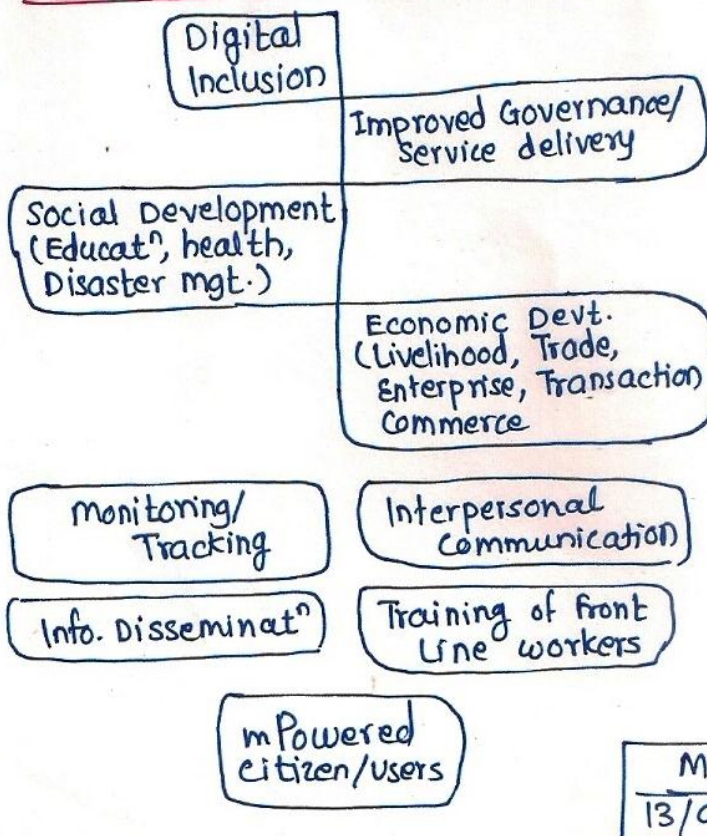 Digital
Inclusion
Improved Governance/
Service delivery
Social Development
(Educatⁿ, health,
Disaster mgt.)
Economic Devt.
(Livelihood, Trade,
Enterprise, Transaction
Commerce
Monitoring/
Tracking
Interpersonal
Communication
Info. Disseminatⁿ
Training of Front
Line workers
mPowered
citizen/users
M
13/